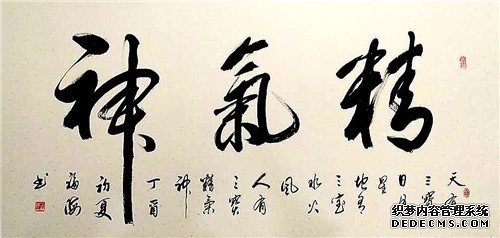 精氣神
天有
三寶
日月
星
地有
三宝
水火
風
人有
三寶
精氣
神
丁酉
初夏
福海
书
织梦内容管理系统
DEDECMS.COM